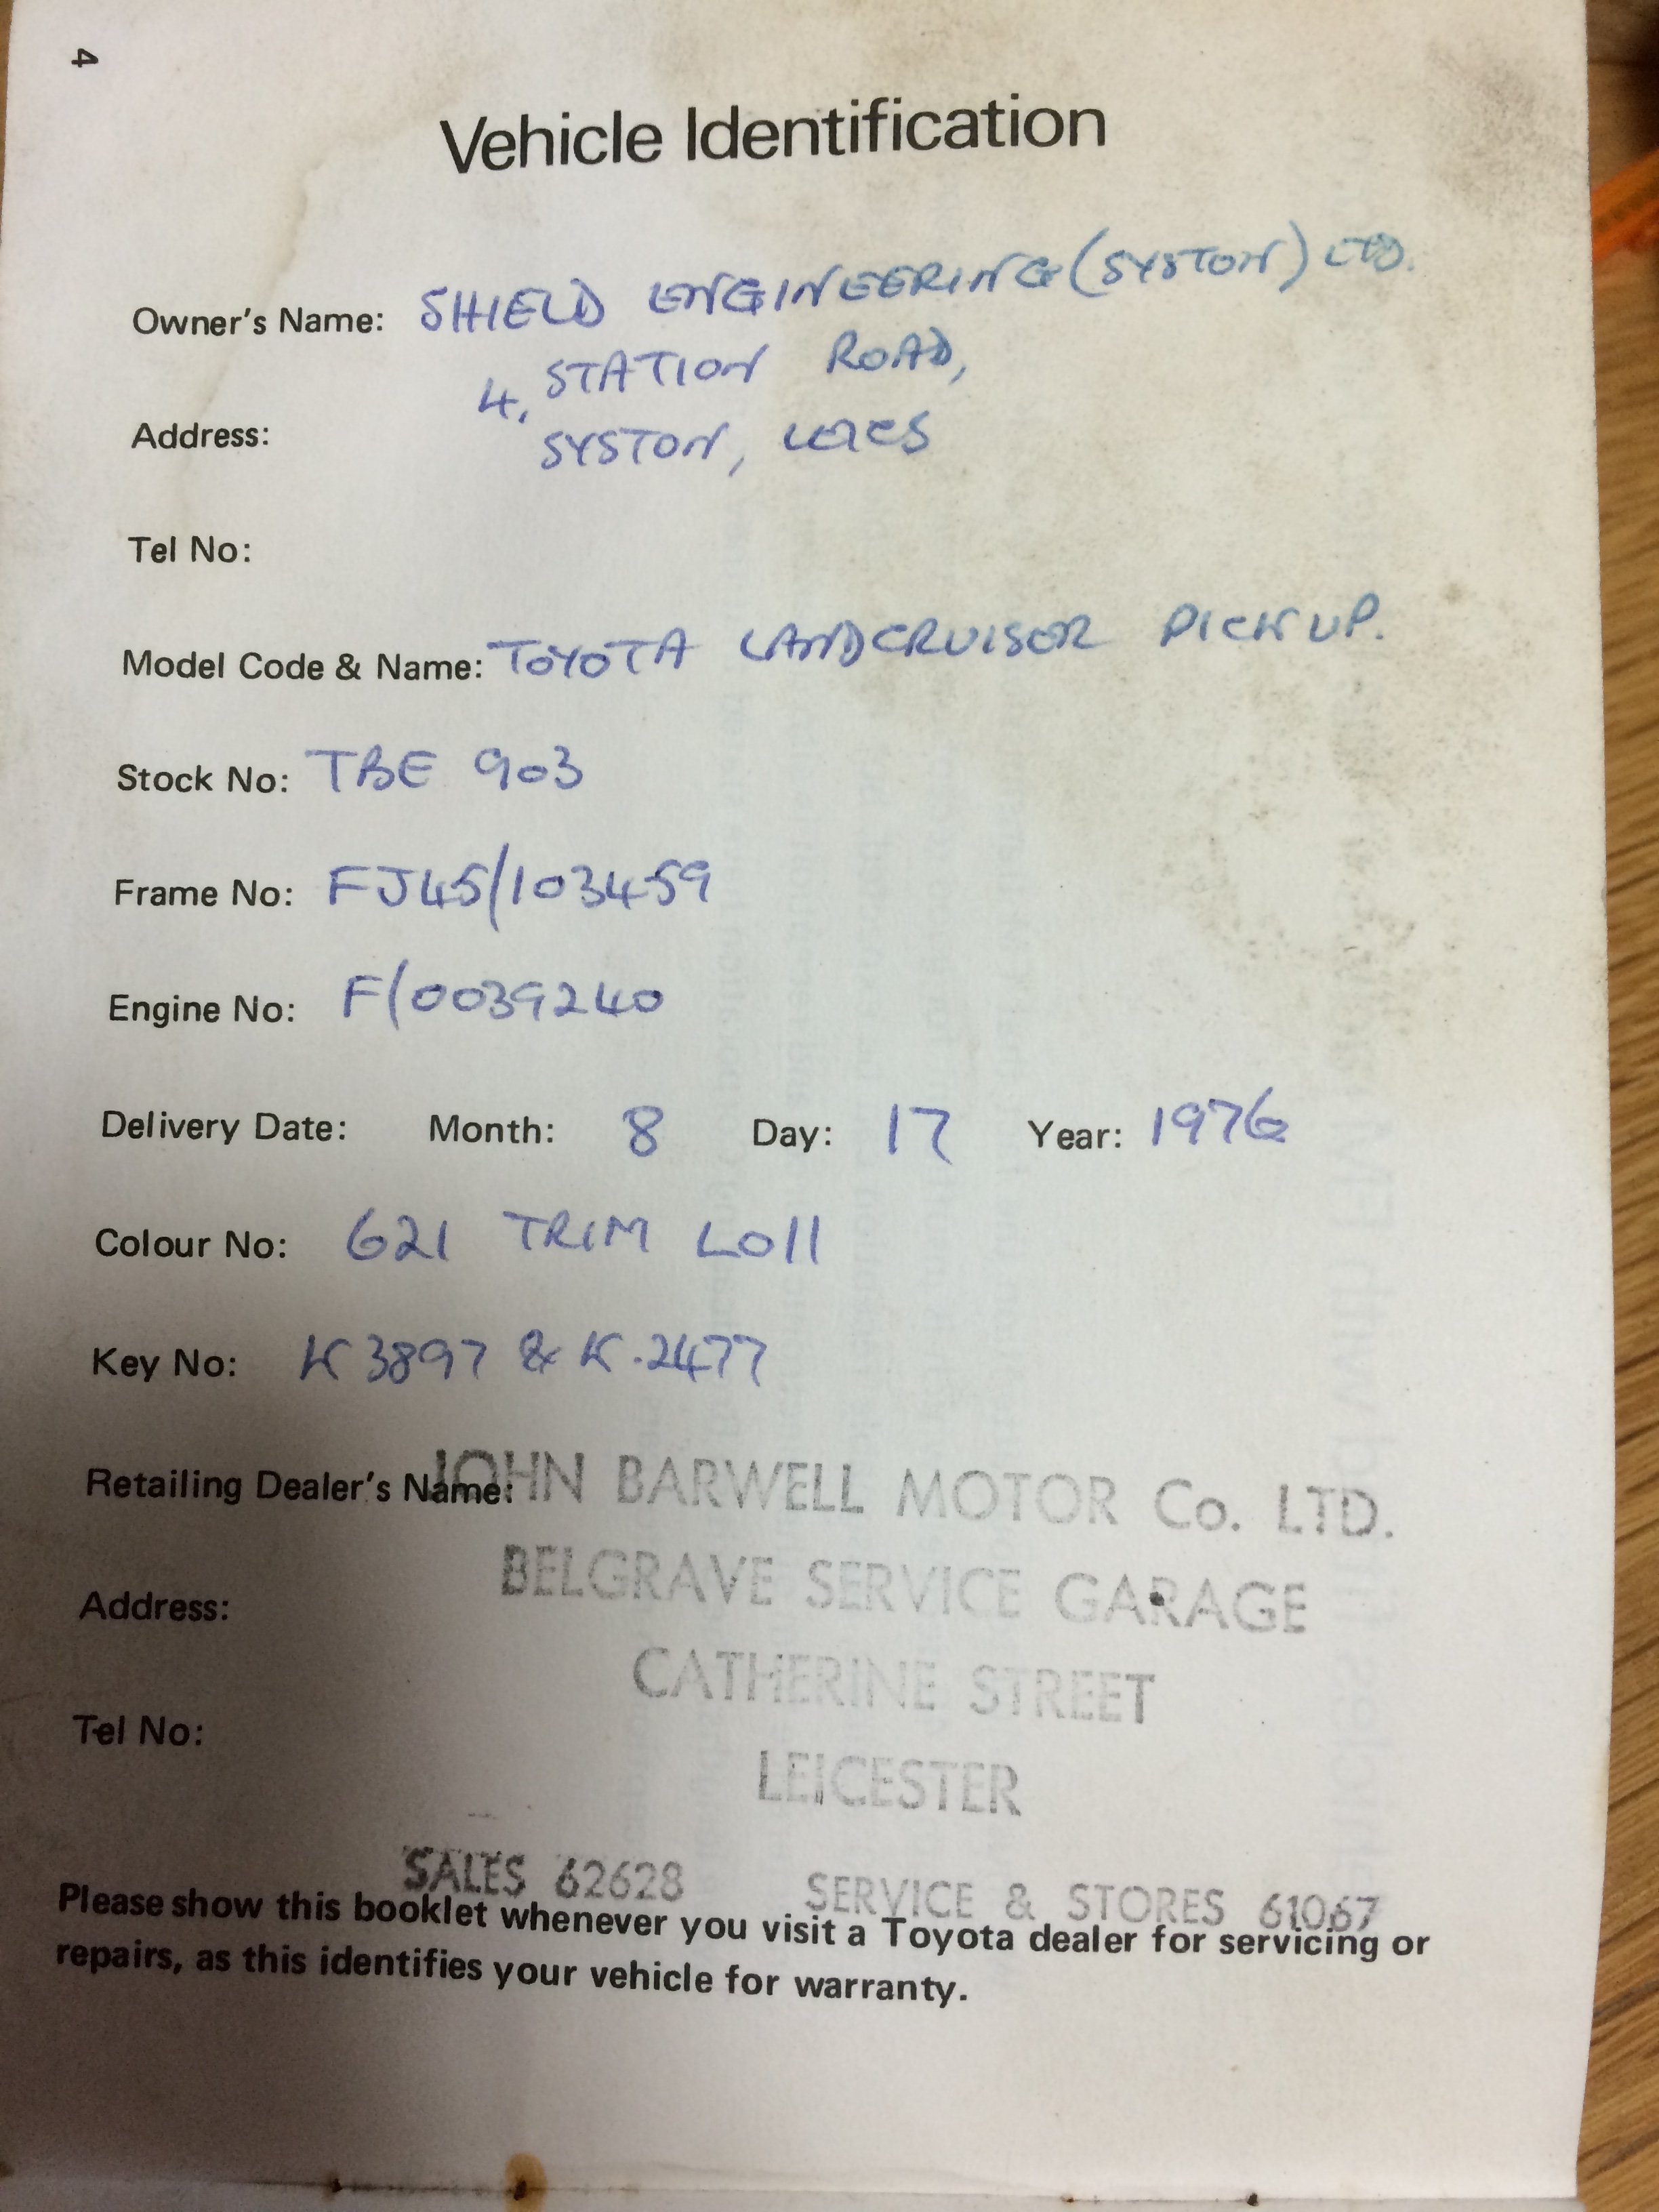 4
Vehicle Identification
Owner's Name: SHIELD ENGINEERING (SYSTON) LTD.
4, STATION ROAD,
Address: SYSTON, LEICS
Tel No:
Model Code & Name: TOYOTA LANDCRUISER PICKUP.
Stock No: TBE 903
Frame No: FJ45/103459
Engine No: F/0039240
Delivery Date: Month: 8 Day: 17 Year: 1976
Colour No: 621 TRIM LO11
Key No: K 3897 & K.2477
Retailing Dealer's Name: JOHN BARWELL MOTOR Co. LTD.
BELGRAVE SERVICE GARAGE
Address:
CATHERINE STREET
Tel No:
LEICESTER
SALES 62628 SERVICE & STORES 61067
Please show this booklet whenever you visit a Toyota dealer for servicing or
repairs, as this identifies your vehicle for warranty.